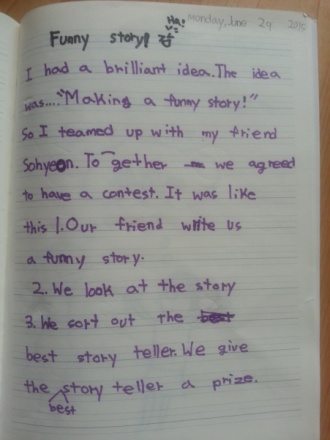 Monday, June 29
Funny story!
I had a brilliant idea. The idea
was...."Making a funny story!"
So I teamed up with my friend
Sohyeon. To gether we agreed
to have a contest. It was like
this 1. Our friend write us
a funny story.
2. We look at the story
3. We sort out the best
best story teller. We give
the best story teller a prize.